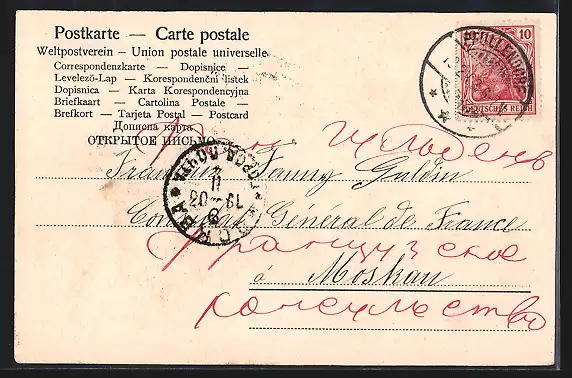 Postkarte — Carte postale
Weltpostverein — Union postale universelle
Correspondenzkarte — Dopisnice —
Levelező-Lap — Korespondenční listek
Dopisnica — Karta Korespondencyjna
Briefkaart — Cartolina Postale —
Brefkort — Tarjeta Postal — Postcard
Дописна карта
ОТКРЫТОЕ ПИСЬМО
10
DEUTSCHES REICH
PFULLENDORF
МОСКВА
19 03
Fanny Guldin
Consulat Général de France
Французское
à Moskau
консульство